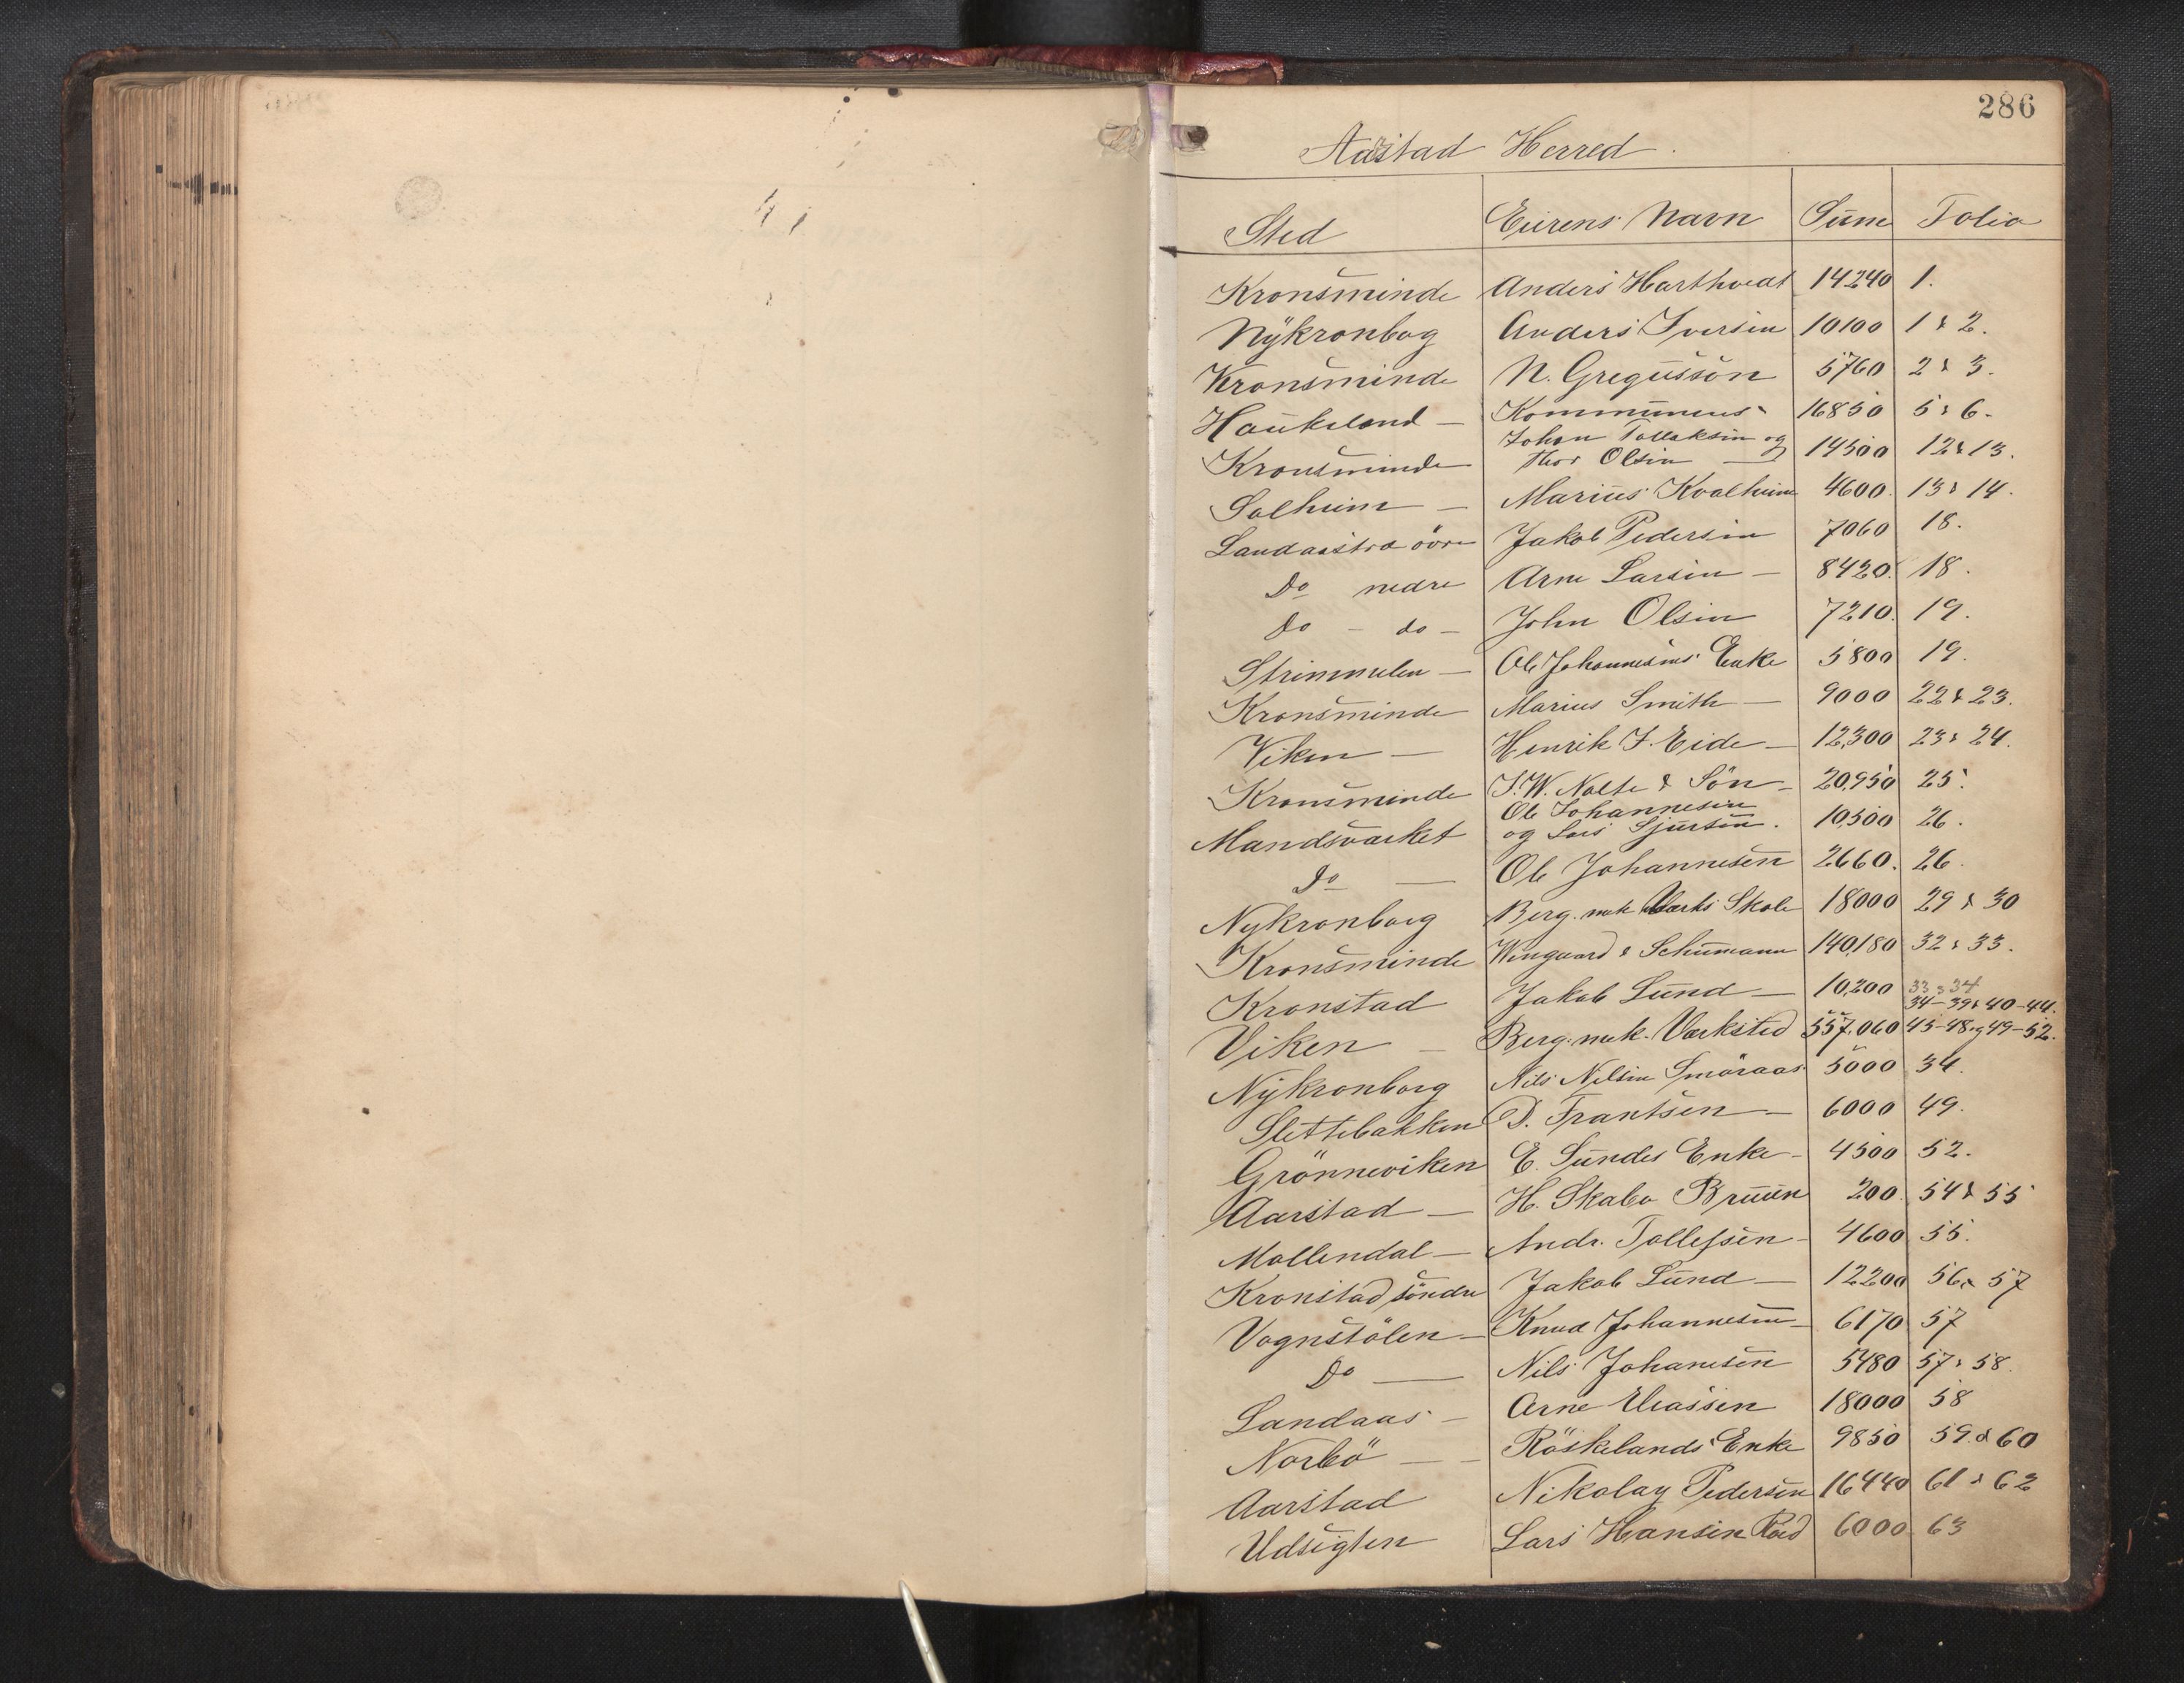 286
Aarstad Herred.
Sted Eierens Navn Sum Folio
Kronsminde Anders Harthvedt 14240 1.
Nÿkronbog Anders Iversen 10100 1 & 2.
Kronsminde N. Gregusson 5760 2 & 3.
Haukeland — Kommunens 16850 5 & 6.
Kronsminde Johan Tollaksen og Thor Olsen — 14500 12 & 13.
Solheim — Marius Kvalheim 4600. 13 & 14.
Landaastræ övre Jakob Pedersen 7060 18.
Do nedre Arne Larsen — 8420. 18.
Do - do - John Olsen 7210. 19.
Strimmelen — Ole Johannesens Enke 5800 19.
Kronsminde Marius Smith — 9000 22 & 23.
Viken — Henrik J. Eide — 12,300 23 & 24.
Kronsminde J. W. Nolte & Sön — 20,950 25.
Mandsværket Ole Johannesen og Lars Sjursen. 10,500 26.
Do — Ole Johannesen 2660. 26.
Nykronborg Berg. mek Værks Skole 18000 29 & 30
Kronsminde Wingaard & Schumann 140,180 32 & 33.
Kronstad Jakob Lund — 10,200 33 & 34
34-39 & 40-44.
Viken — Berg. mek. Værksted 557,060 45-48 og 49-52.
Nÿkronborg Nils Nilsen Smöraas 5000 34.
Slettebakken D. Frantsen — 6000 49.
Grönneviken E. Sundes Enke — 4500 52.
Aarstad — H. Skabo Bruun 200. 54 & 55
Mollendal — Andr. Tollefsen — 4600 55.
Kronstad söndre Jakob Lund — 12200 56 & 57
Vognstölen — Knud Johannesen — 6170 57
Do — Nils Johanesen 5480 57 & 58.
Landaas — Arne Eliassen 18000 58
Norbö — Röskelands Enke 9850 59 & 60
Aarstad Nikolay Pedersen 16440 61 & 62
Udsigten Lars Hansen 6000 63